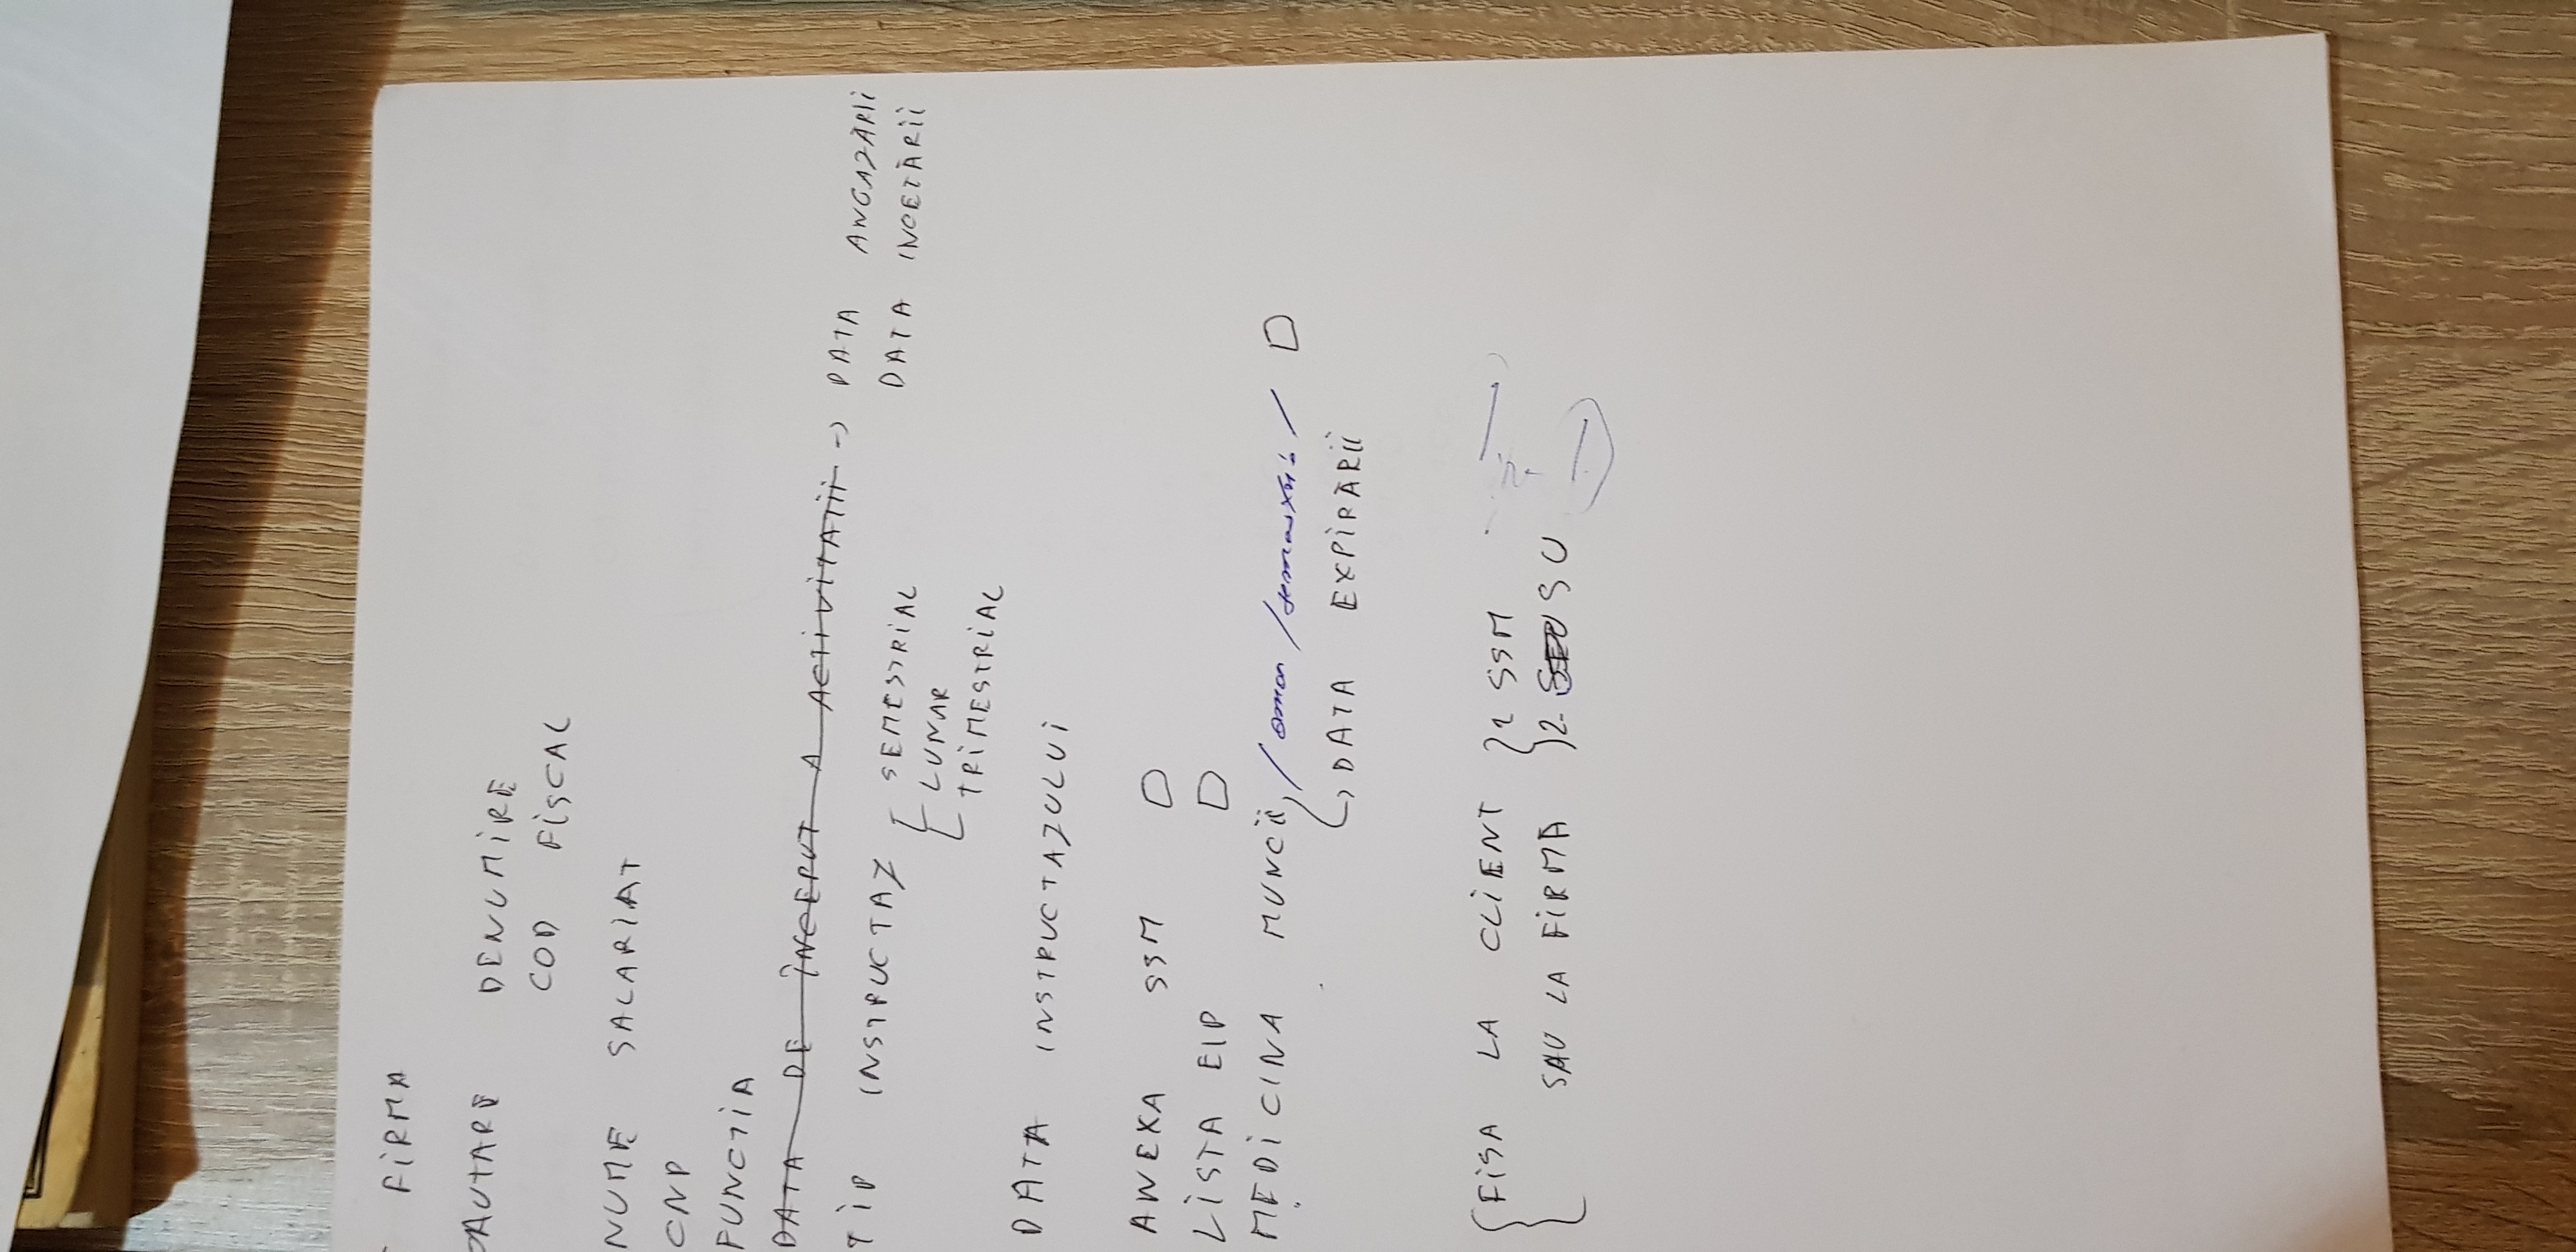 FIRMA
CAUTARE DENUMIRE
COD FISCAL
NUME SALARIAT
CNP
FUNCTIA
DATA DE ÎNCEPUT A ACTIVITATII -> DATA ANGAJĂRII
DATA INCETĂRII
TIP INSTRUCTAJ - SEMESTRIAL
LUNAR
TRIMESTRIAL
DATA INSTRUCTAJULUI
ANEXA SSM
LISTA EIP
MEDICINA MUNCII / /
DATA EXPIRĂRII
FISA LA CLIENT 1 SSM
SAU LA FIRMĂ 2. SU